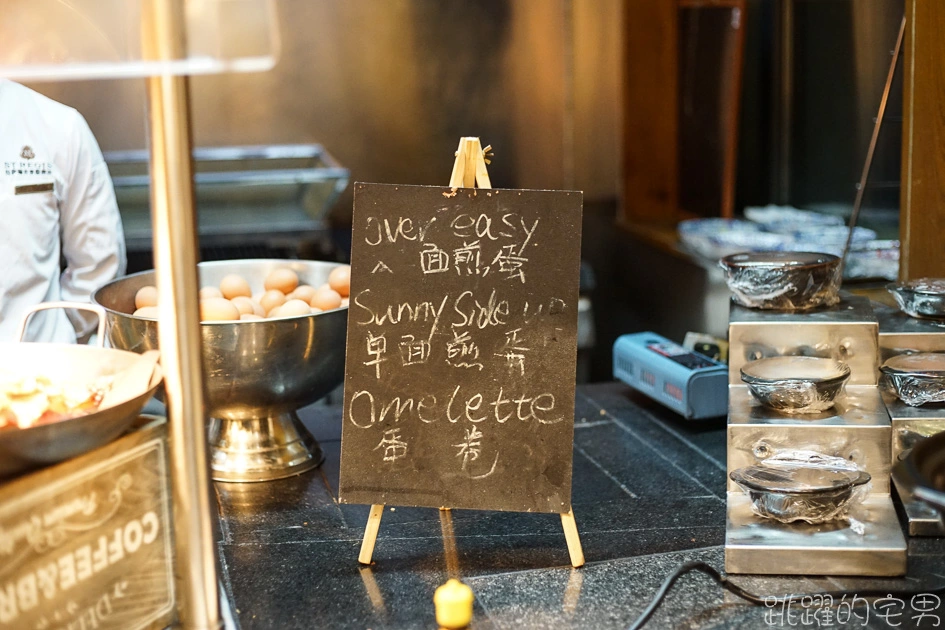 over easy
面煎蛋
Sunny Side up
单面煎蛋
Omelette
蛋卷
COFFEE&BR
跳躍的宅男